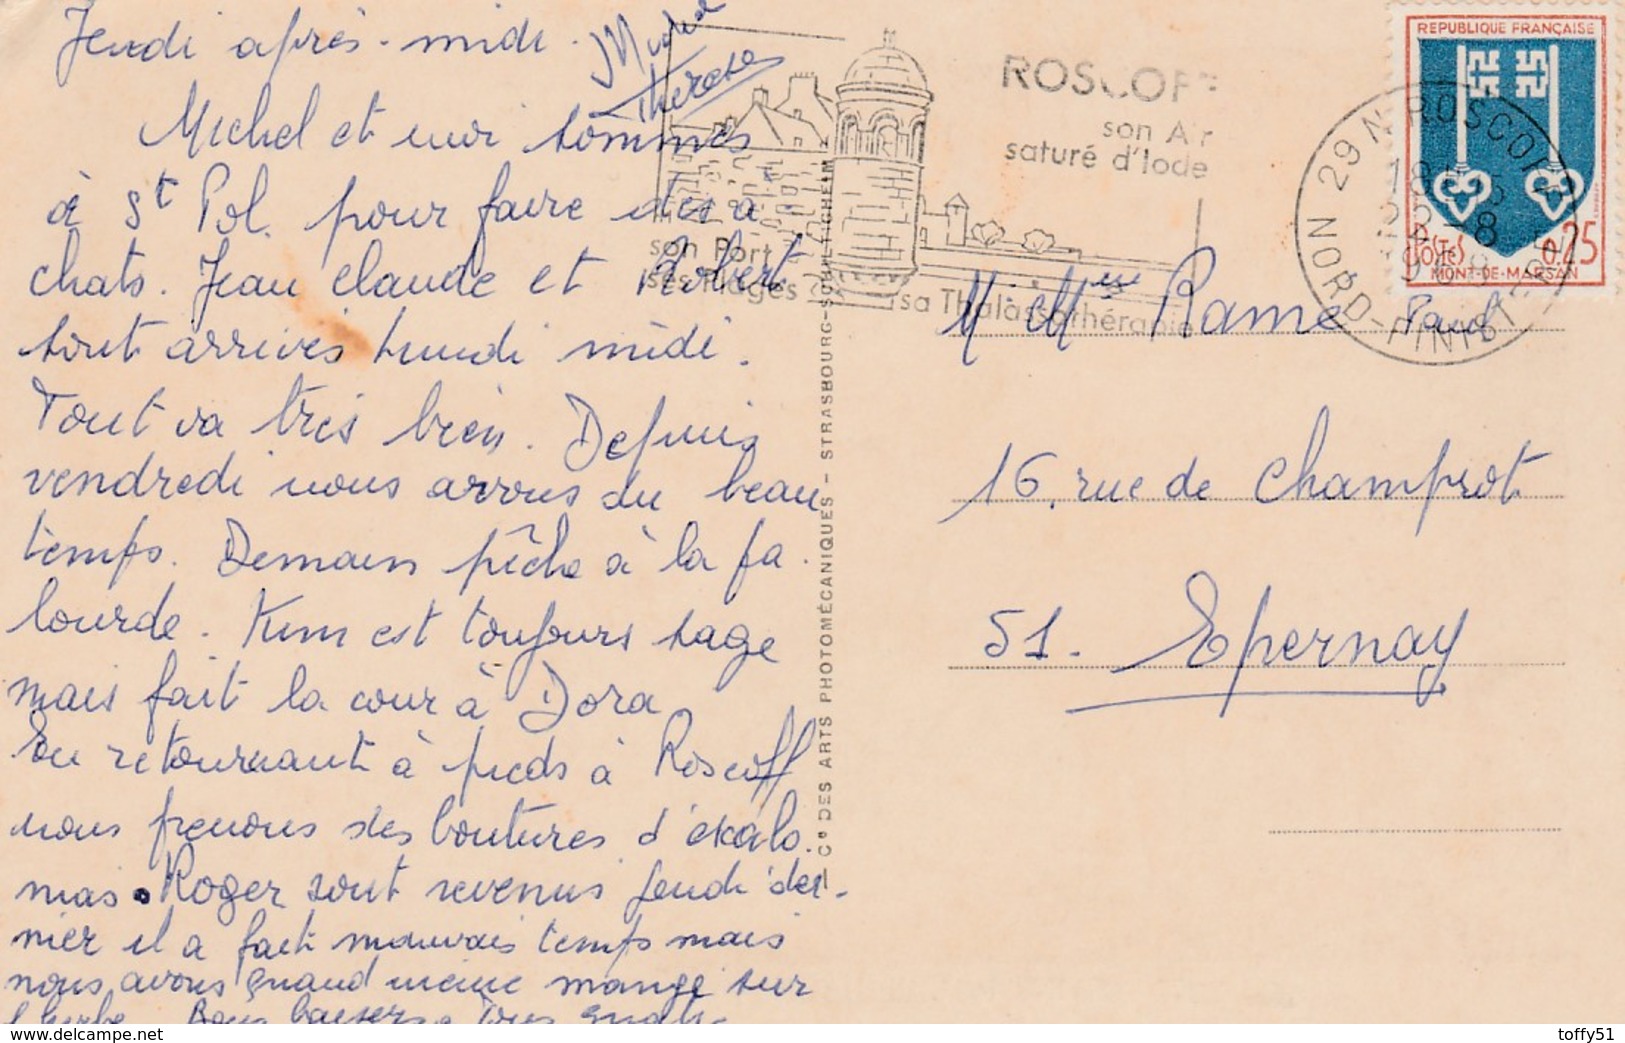 Jeudi après-midi.
Michel
Therese
Michel et moi sommes
à St Pol. pour faire des a
chats. Jean claude et Robert
sont arrivés lundi midi.
Tout va très bien. Depuis
vendredi nous avons du beau
temps. Demain pêche à la pa.
lourde. Kim est toujours sage
mais fait la cour à Dora.
En retournant à pieds à Roscoff
nous prenons des boutures d'exalo.
mas. Roger sont revenus jeudi der-
nier il a fait mauvais temps mais
nous avons quand même mangé sur
l'herbe. Bons baisers à Tous
Cie DES ARTS PHOTOMÉCANIQUES - STRASBOURG-SCHILTIGHEIM
ROSCOFF
son Air
saturé d'Iode
son Port
ses Plages
sa Thalassothérapie
29 N ROSCOFF
NORD-FINISTERE
REPUBLIQUE FRANÇAISE
POSTES
0,25
MONT-DE-MARSAN
M. Mme Rame Paul
16, rue de Champrot
51. Epernay
toffy51